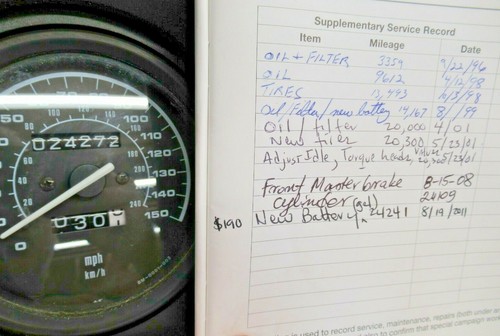 50
110
120
130
140
150
0
024272
030
mph
km/h
Supplementary Service Record
Item Mileage Date
OIL + FILTER 3359 9/22/96
OIL 9612 4/12/98
TIRES 13,493 /98
Oil/Filter/new battery 14,167 8/ /99
Oil / filter 20,000 4/01
New Tires 20,300 5/23/01
Adjust Idle, Torque heads, Valves 20,300 5/23/01
Front Master brake 8-15-08
cylinder 24109
$190 New Battery 24241 8/19/2011
is used to record service, maintenance, repairs (both under
also to confirm that special campaign work